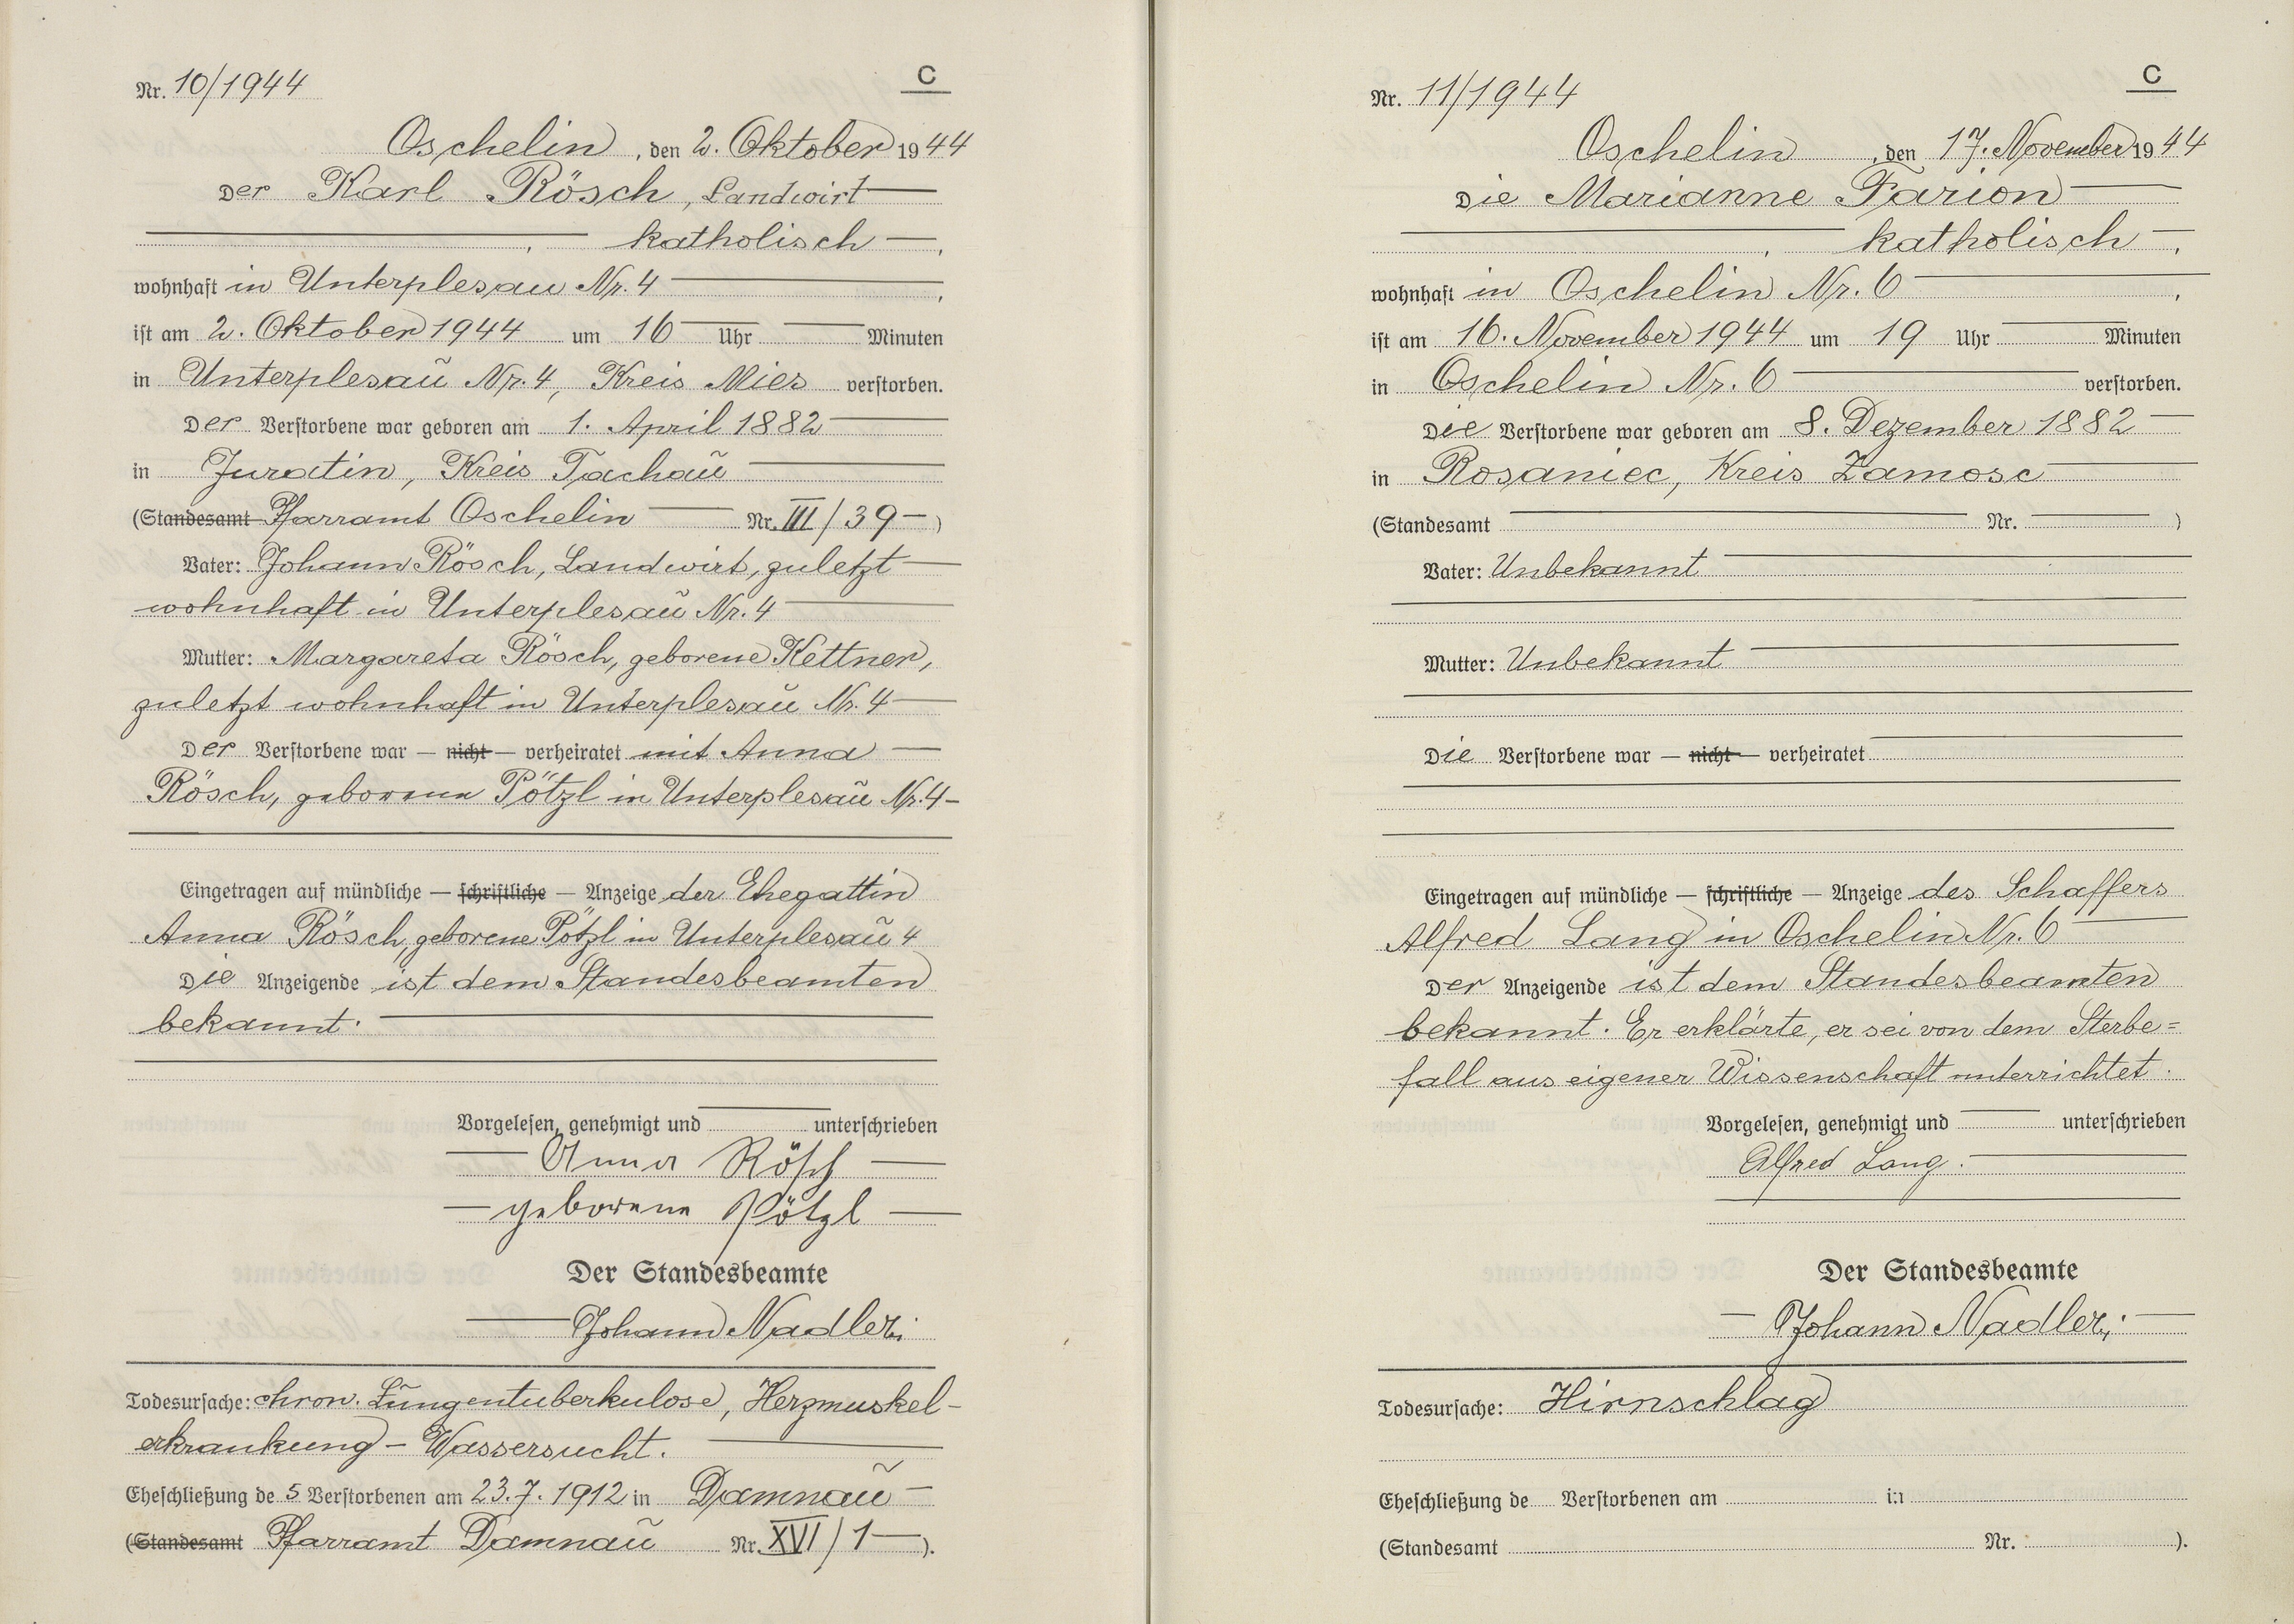 Nr. 10/1944
C
Oschelin, den 2. Oktober 1944
Der Karl Rösch, Landwirt
, katholisch,
wohnhaft in Unterplesau Nr. 4,
ist am 2. Oktober 1944 um 16 Uhr Minuten
in Unterplesau Nr. 4, Kreis Mies verstorben.
Der Verstorbene war geboren am 1. April 1882
in Juratin, Kreis Tachau
(Standesamt Pfarramt Oschelin Nr. III/39)
Vater: Johann Rösch, Landwirt, zuletzt
wohnhaft in Unterplesau Nr. 4
Mutter: Margareta Rösch, geborene Kettner,
zuletzt wohnhaft in Unterplesau Nr. 4
Der Verstorbene war — nicht — verheiratet mit Anna
Rösch, geborene Pötzl in Unterplesau Nr. 4
Eingetragen auf mündliche — schriftliche — Anzeige der Ehegattin
Anna Rösch, geborene Pötzl in Unterplesau 4
Die Anzeigende ist dem Standesbeamten
bekannt.
Vorgelesen, genehmigt und unterschrieben
Anna Rösch
geborene Pötzl
Der Standesbeamte
Johann Nadler
Todesursache: chron. Lungentuberkulose, Herzmuskel-
erkrankung - Wassersucht.
Eheschließung des Verstorbenen am 23.7.1912 in Damnau
(Standesamt Pfarramt Damnau Nr. XVI/1).
Nr. 11/1944
C
Oschelin, den 17. November 1944
Die Marianne Farion
, katholisch,
wohnhaft in Oschelin Nr. 6,
ist am 16. November 1944 um 19 Uhr Minuten
in Oschelin Nr. 6 verstorben.
Die Verstorbene war geboren am 8. Dezember 1882
in Rosaniec, Kreis Zamosc
(Standesamt Nr. )
Vater: Unbekannt
Mutter: Unbekannt
Die Verstorbene war — nicht — verheiratet
Eingetragen auf mündliche — schriftliche — Anzeige des Schaffers
Alfred Lang in Oschelin Nr. 6
Der Anzeigende ist dem Standesbeamten
bekannt. Er erklärte, er sei von dem Sterbe=
fall aus eigener Wissenschaft unterrichtet.
Vorgelesen, genehmigt und unterschrieben
Alfred Lang.
Der Standesbeamte
Johann Nadler
Todesursache: Hirnschlag
Eheschließung de Verstorbenen am in
(Standesamt Nr. ).